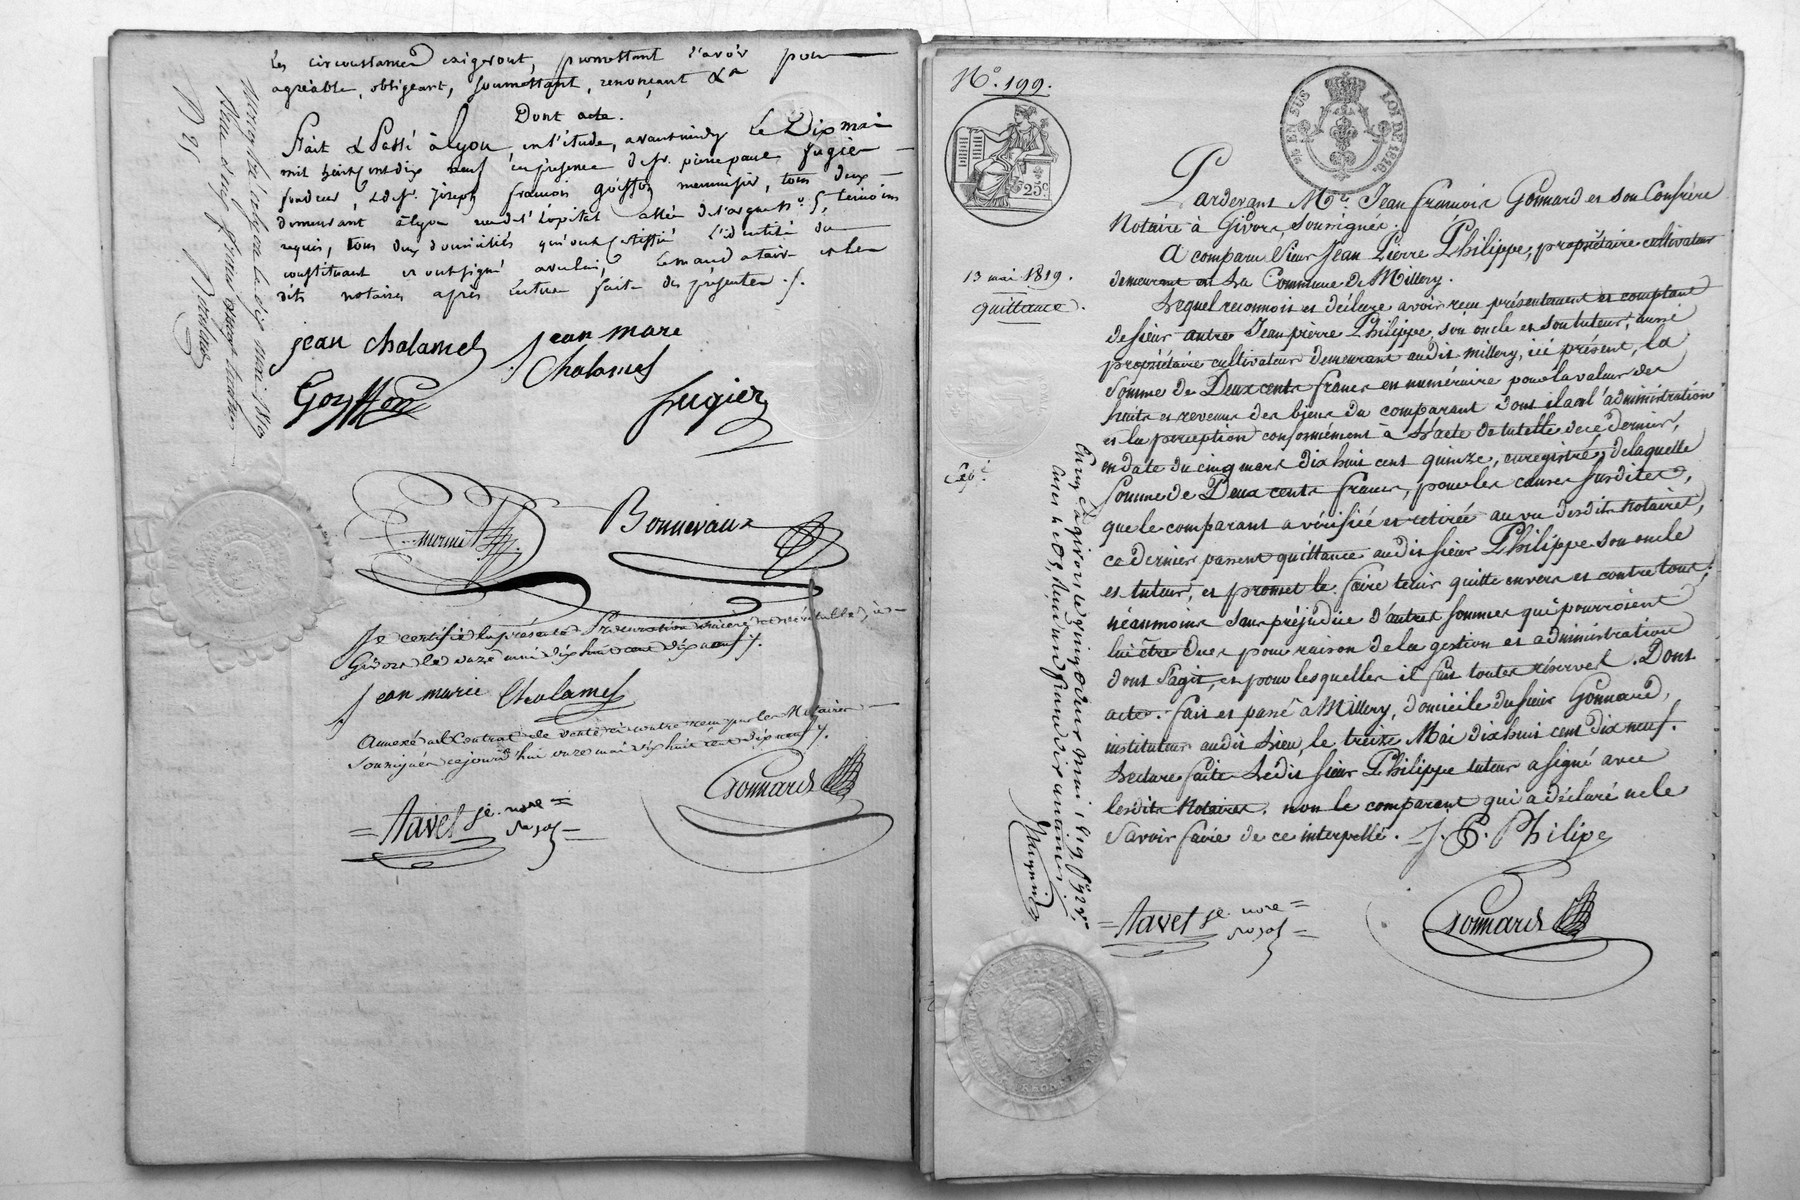 les circonstances exigeront, promettant l'avoir pour
agréable, obligeant, soumettant, renonçant &a
Dont acte.
Fait & Passé à Lyon en l'étude, avant midy Le Dix mai
mil huit cent dix neuf en présence de sr. pierre paul fugier
fondeur, & de sr. joseph françois goiffon menuisier, tous deux
demeurant à Lyon rue de l'hopital allée de l'argue no. 5, témoins
requis, tous deux domiciliés qui ont attesté l'identité du
constituant et ont signé avec lui, le mandataire et les
dits notaires après lecture faite des présentes ./.
jean chalamel jean marc
Chalamel
Goyffon fugier
Bonnevaux
Je certifie la présente Procuration sincère et véritable, à
Givors le onze mai dix huit cent dix neuf ./.
jean marie Chalamel
Annexé au Contrat de vente ci contre reçu par les Notaires
Soussignés cejourd'hui onze mai dix huit cent dix neuf ./.
Gonnard
= Tavel je. nore =
royal =
No. 199.
25c
LOI DE 1816.
13 mai 1819.
quittance.
Pardevant Me. Jean François Gonnard et son Confrère
Notaire à Givors, soussignés.
A comparu Sieur Jean Pierre Philippe, propriétaire cultivateur
demeurant en la Commune de Millery.
Lequel reconnoit et déclare avoir reçu présentement et comptant
de sieur autre Jean pierre Philippe, son oncle et son tuteur, aussi
propriétaire cultivateur demeurant audit Millery, ici présent, la
somme de Deux cents francs en numéraire pour la valeur des
fruits et revenus des biens du comparant dont il a eu l'administration
et la perception conformément à l'acte de tutelle de ce dernier,
en date du cinq mars dix huit cent quinze, enregistré, de laquelle
somme de Deux cents francs, pour les causes susdites,
que le comparant a vérifiée et retirée au vu desdits Notaires,
ce dernier passent quittance audit sieur Philippe son oncle
et tuteur, et promet le faire tenir quitte envers et contre tous;
néanmoins sans préjudice d'autres sommes qui pourroient
lui être dues pour raison de la gestion et administration
dont s'agit, et pour lesquelles il fait toutes réserves. Dont
acte. fait et passé à Millery, domicile du sieur Gonnard,
instituteur audit lieu, le treize Mai dix huit cent dix neuf.
Lecture faite ledit sieur Philippe tuteur a signé avec
lesdits Notaires. non le comparant qui a déclaré ne le
savoir faire de ce interpellé. J. P. Philipe
= Tavel je. nore =
royal =
Gonnard